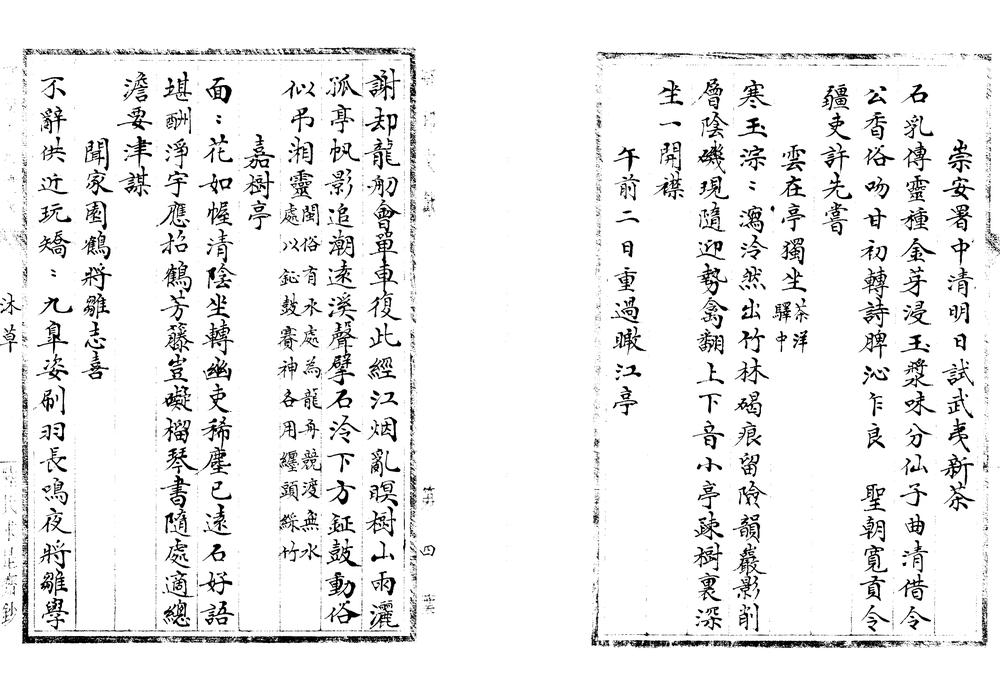 崇安署中清明日試武夷新茶
石乳傳靈種金芽浸玉漿味分仙子曲清借令
公香俗吻甘初轉詩脾沁乍良 聖朝寬貢令
疆吏許先嘗
雲在亭獨坐茶洋驛中
寒玉淙〻瀉泠然出竹林碣痕留險韻巖影削
層陰磯現隨迎勢禽翻上下音小亭疎樹裏深
坐一開襟
午前二日重過瞰江亭
謝却龍舠會單車復此經江烟亂暝樹山雨灑
孤亭帆影追潮遠溪聲擘石泠下方鉦鼓動俗
似弔湘靈閩俗有水處為龍舟競渡無水處以鉦鼓賽神各用纒頭綵竹
嘉樹亭
面〻花如幄清陰坐轉幽吏稀塵已遠石好語
堪酬淨宇應招鶴芳籐豈礙榴琴書隨處適總
澹要津謀
聞家園鶴將雛志喜
不辭供近玩矯〻九皐姿刷羽長鳴夜將雛學
沐草
第四葉